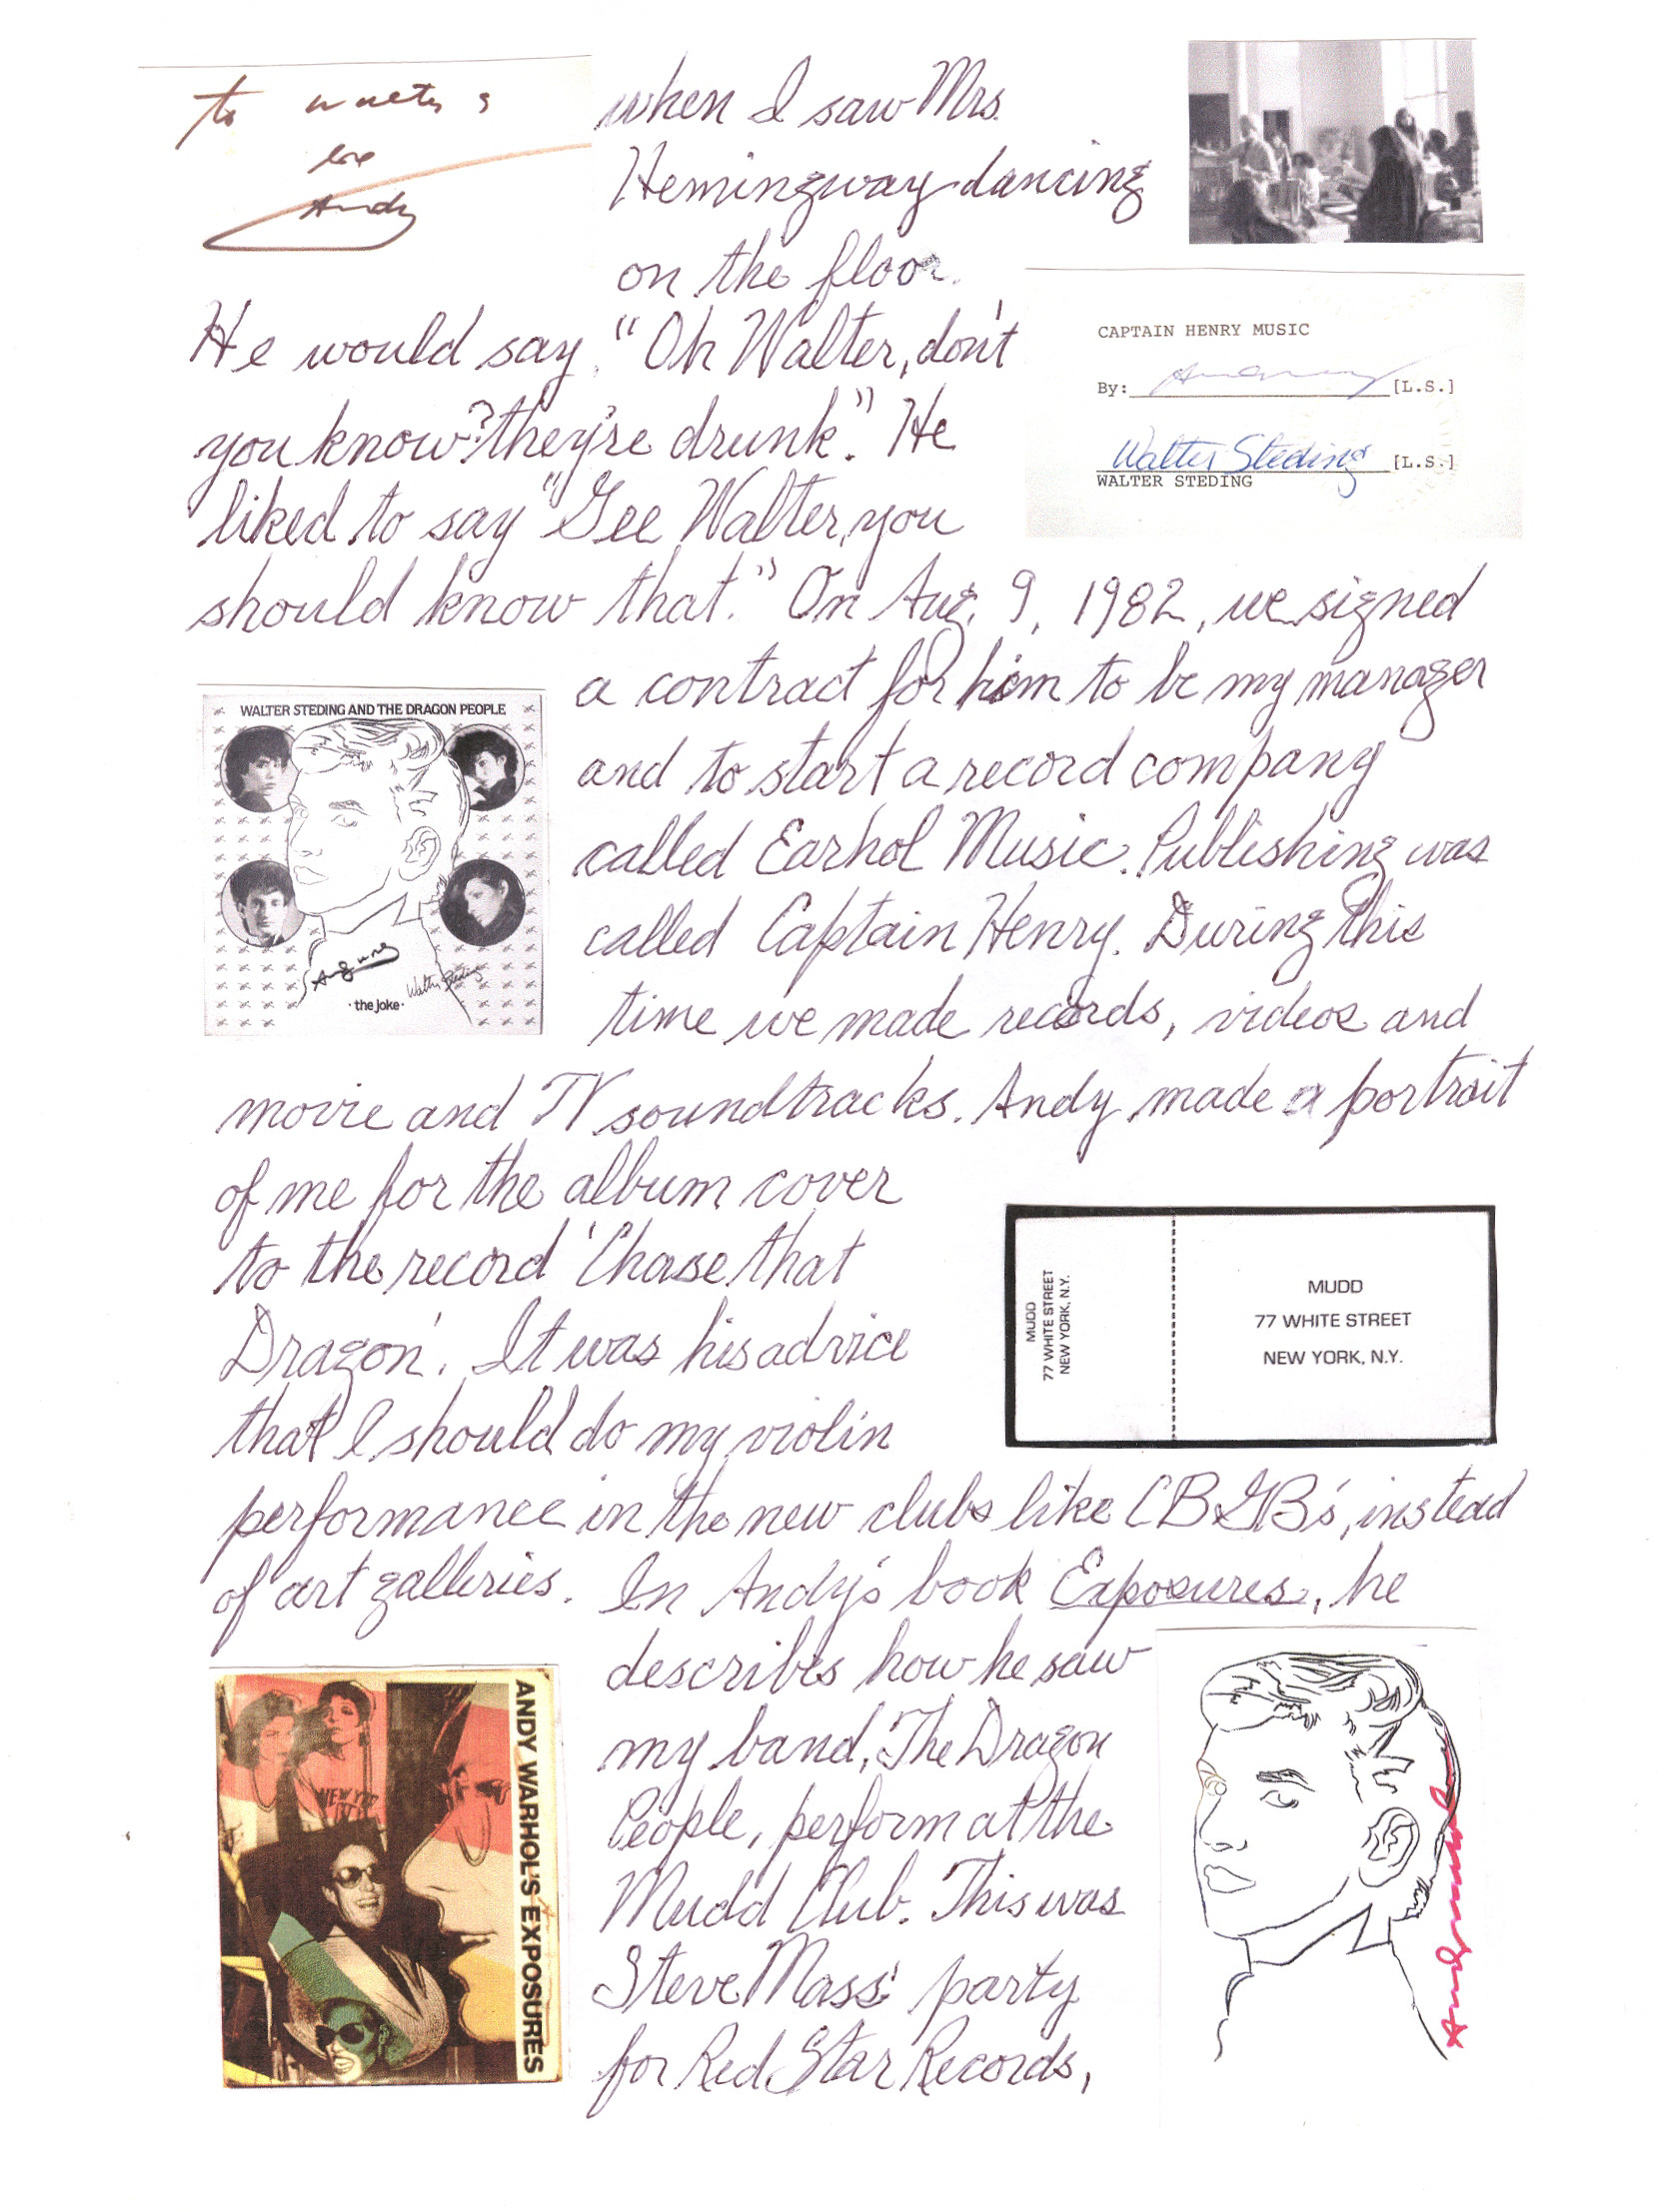 to Walter
love
Andy
when I saw Mrs.
Hemingway dancing
on the floor.
He would say, "Oh Walter, don't
you know? they're drunk." He
liked to say "Gee Walter, you
should know that." On Aug. 9, 1982, we signed
CAPTAIN HENRY MUSIC
By: [L.S.]
Walter Steding [L.S.]
WALTER STEDING
a contract for him to be my manager
and to start a record company
called Earhol Music. Publishing was
called Captain Henry. During this
time we made records, videos and
WALTER STEDING AND THE DRAGON PEOPLE
Walter Steding
· the joke ·
movie and TV soundtracks. Andy made a portrait
of me for the album cover
to the record 'Chase that
Dragon'. It was his advice
that I should do my violin
MUDD
77 WHITE STREET
NEW YORK, N.Y.
MUDD
77 WHITE STREET
NEW YORK, N.Y.
performance in the new clubs like CBGB's, instead
of art galleries. In Andy's book Exposures, he
describes how he saw
my band, The Dragon
People, perform at the
Mudd Club. This was
Steve Mass' party
for Red Star Records,
NEW YO
ANDY WARHOL'S EXPOSURES
Andy Warhol